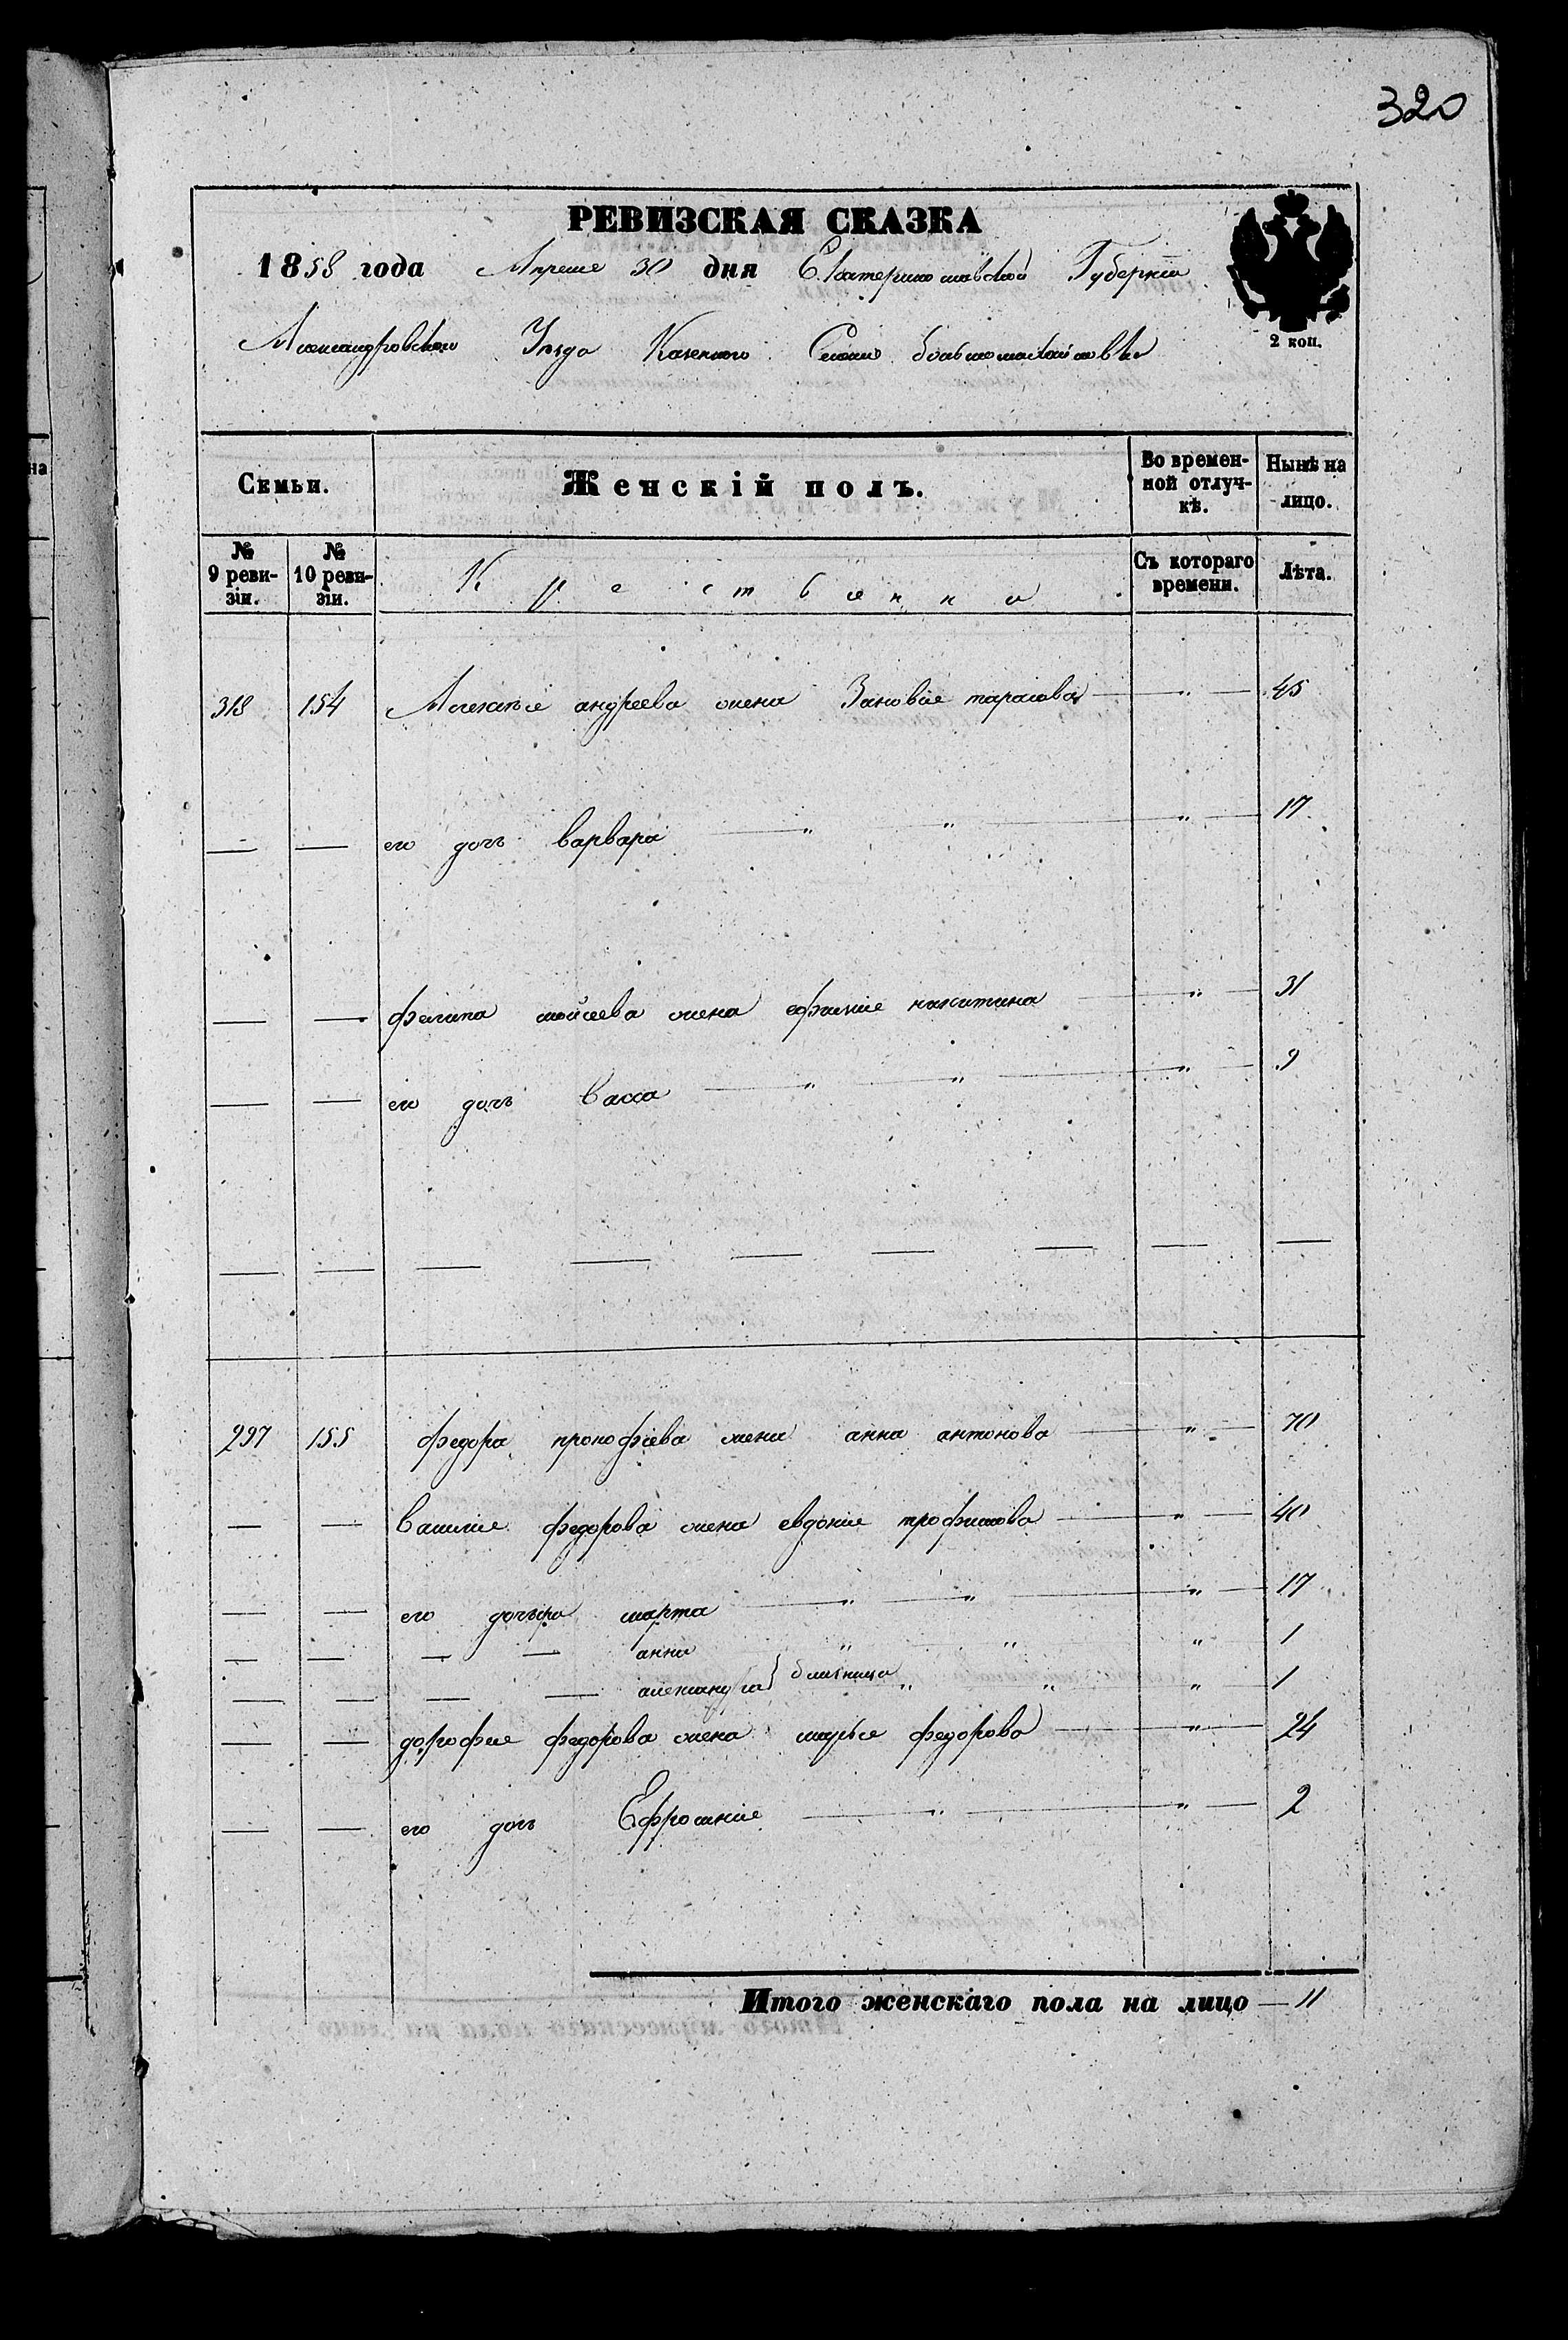 320
РЕВИЗСКАЯ СКАЗКА
1858 года Апреля 30 дня Екатеринославской Губернии
2 коп.
Александровского Уезда Казенного Селения
Семьи. Женскій полъ. Во временной отлучкѣ. Нынѣ на лицо.
№ 9 ревизіи. № 10 ревизіи. Съ котораго времени. Лѣта.
318 154 Алексѣя андреева жена Зановія тарасова — „ — 45
— — его дочь варвара — „ „ — „ — 17
— — филипа мойсеева жена никитина — „ — 31
— — его дочь Васса — „ — „ — „ — 9
— — — — — — — — —
297 155 федора прокофіева жена анна антонова — „ — 70
— — Василия федорова жена евдокия трофимова — „ — 40
— — его дочери марта — „ — „ — „ — 17
— — — — анна „ — „ „ 1
— — — — александра } близнецы „ „ „ — 1
— — дорофия федорова жена марья федорова — „ — 24
— — его дочь Ефросиния — „ — „ — 2
Итого женскаго пола на лицо — 11